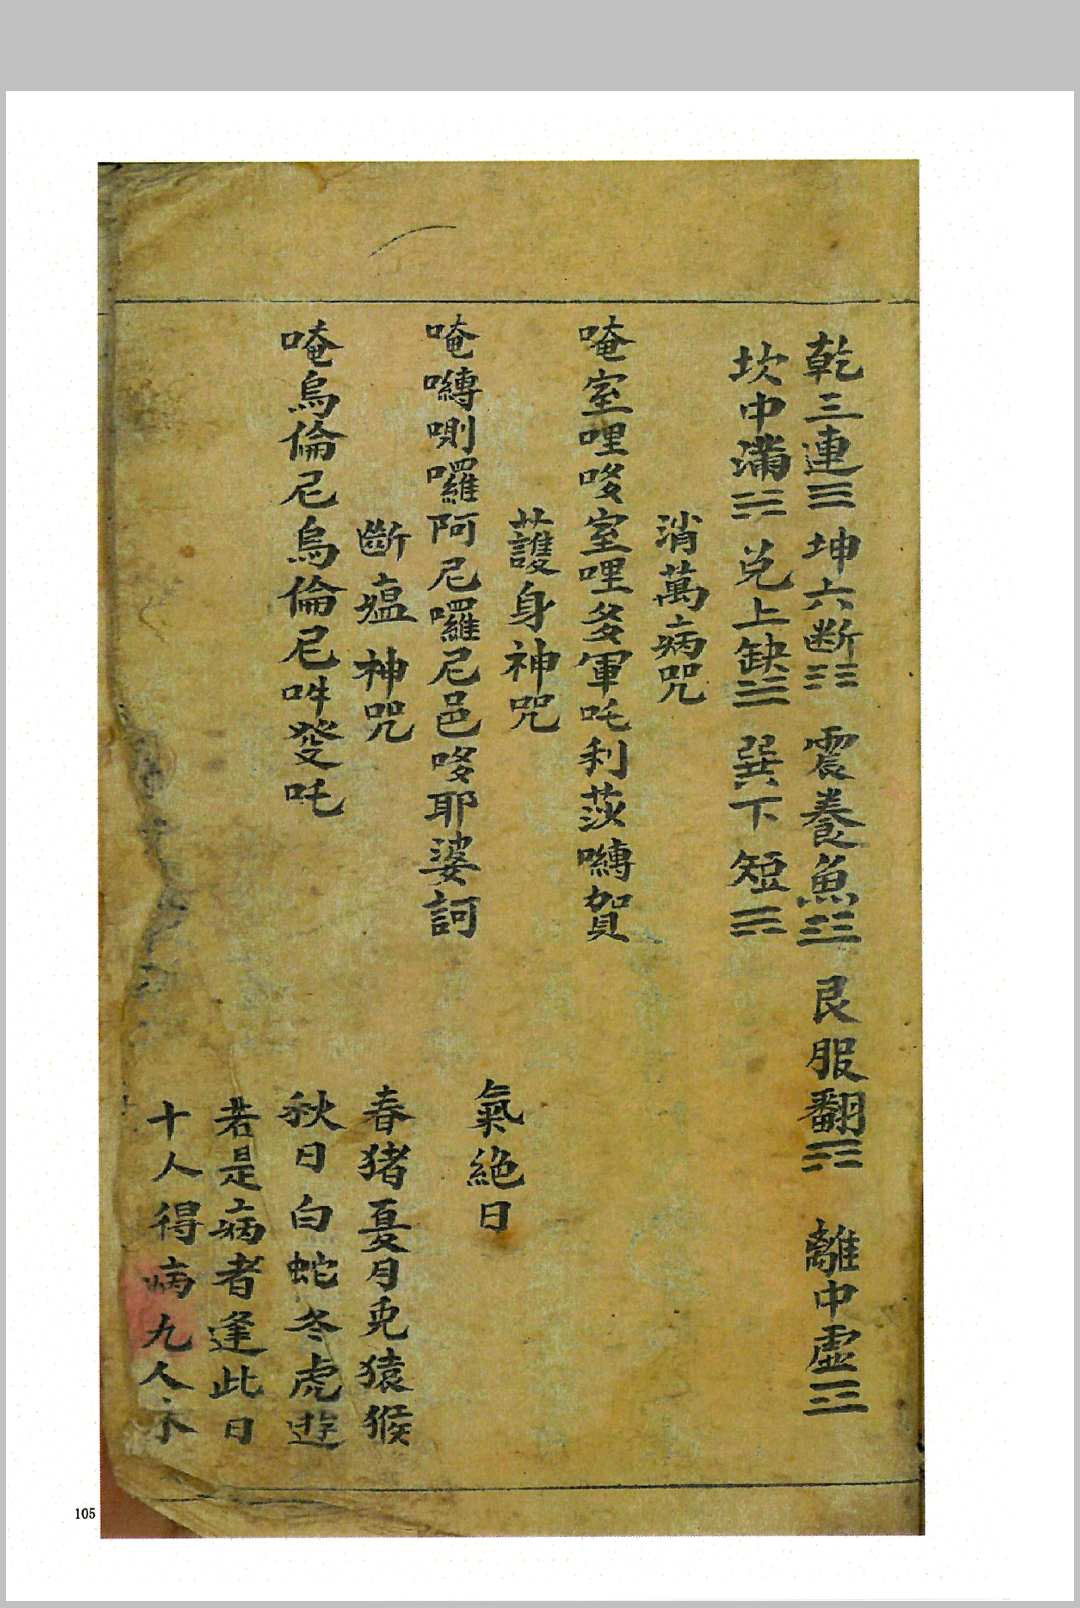 乾三連☰坤六断☷震養魚☳艮服翻☶離中虛☲
坎中滿☵兑上缺☱巽下短☴
消萬病咒
唵室哩哆室哩多軍吒利莎嚩賀
護身神咒
唵嚩喇囉阿尼囉尼邑哆耶婆訶
斷瘟神咒
唵烏倫尼烏倫尼吽癹吒
氣絶日
春猪夏月兎猿猴
秋日白蛇冬虎遊
若是病者逢此日
十人得病九人
105